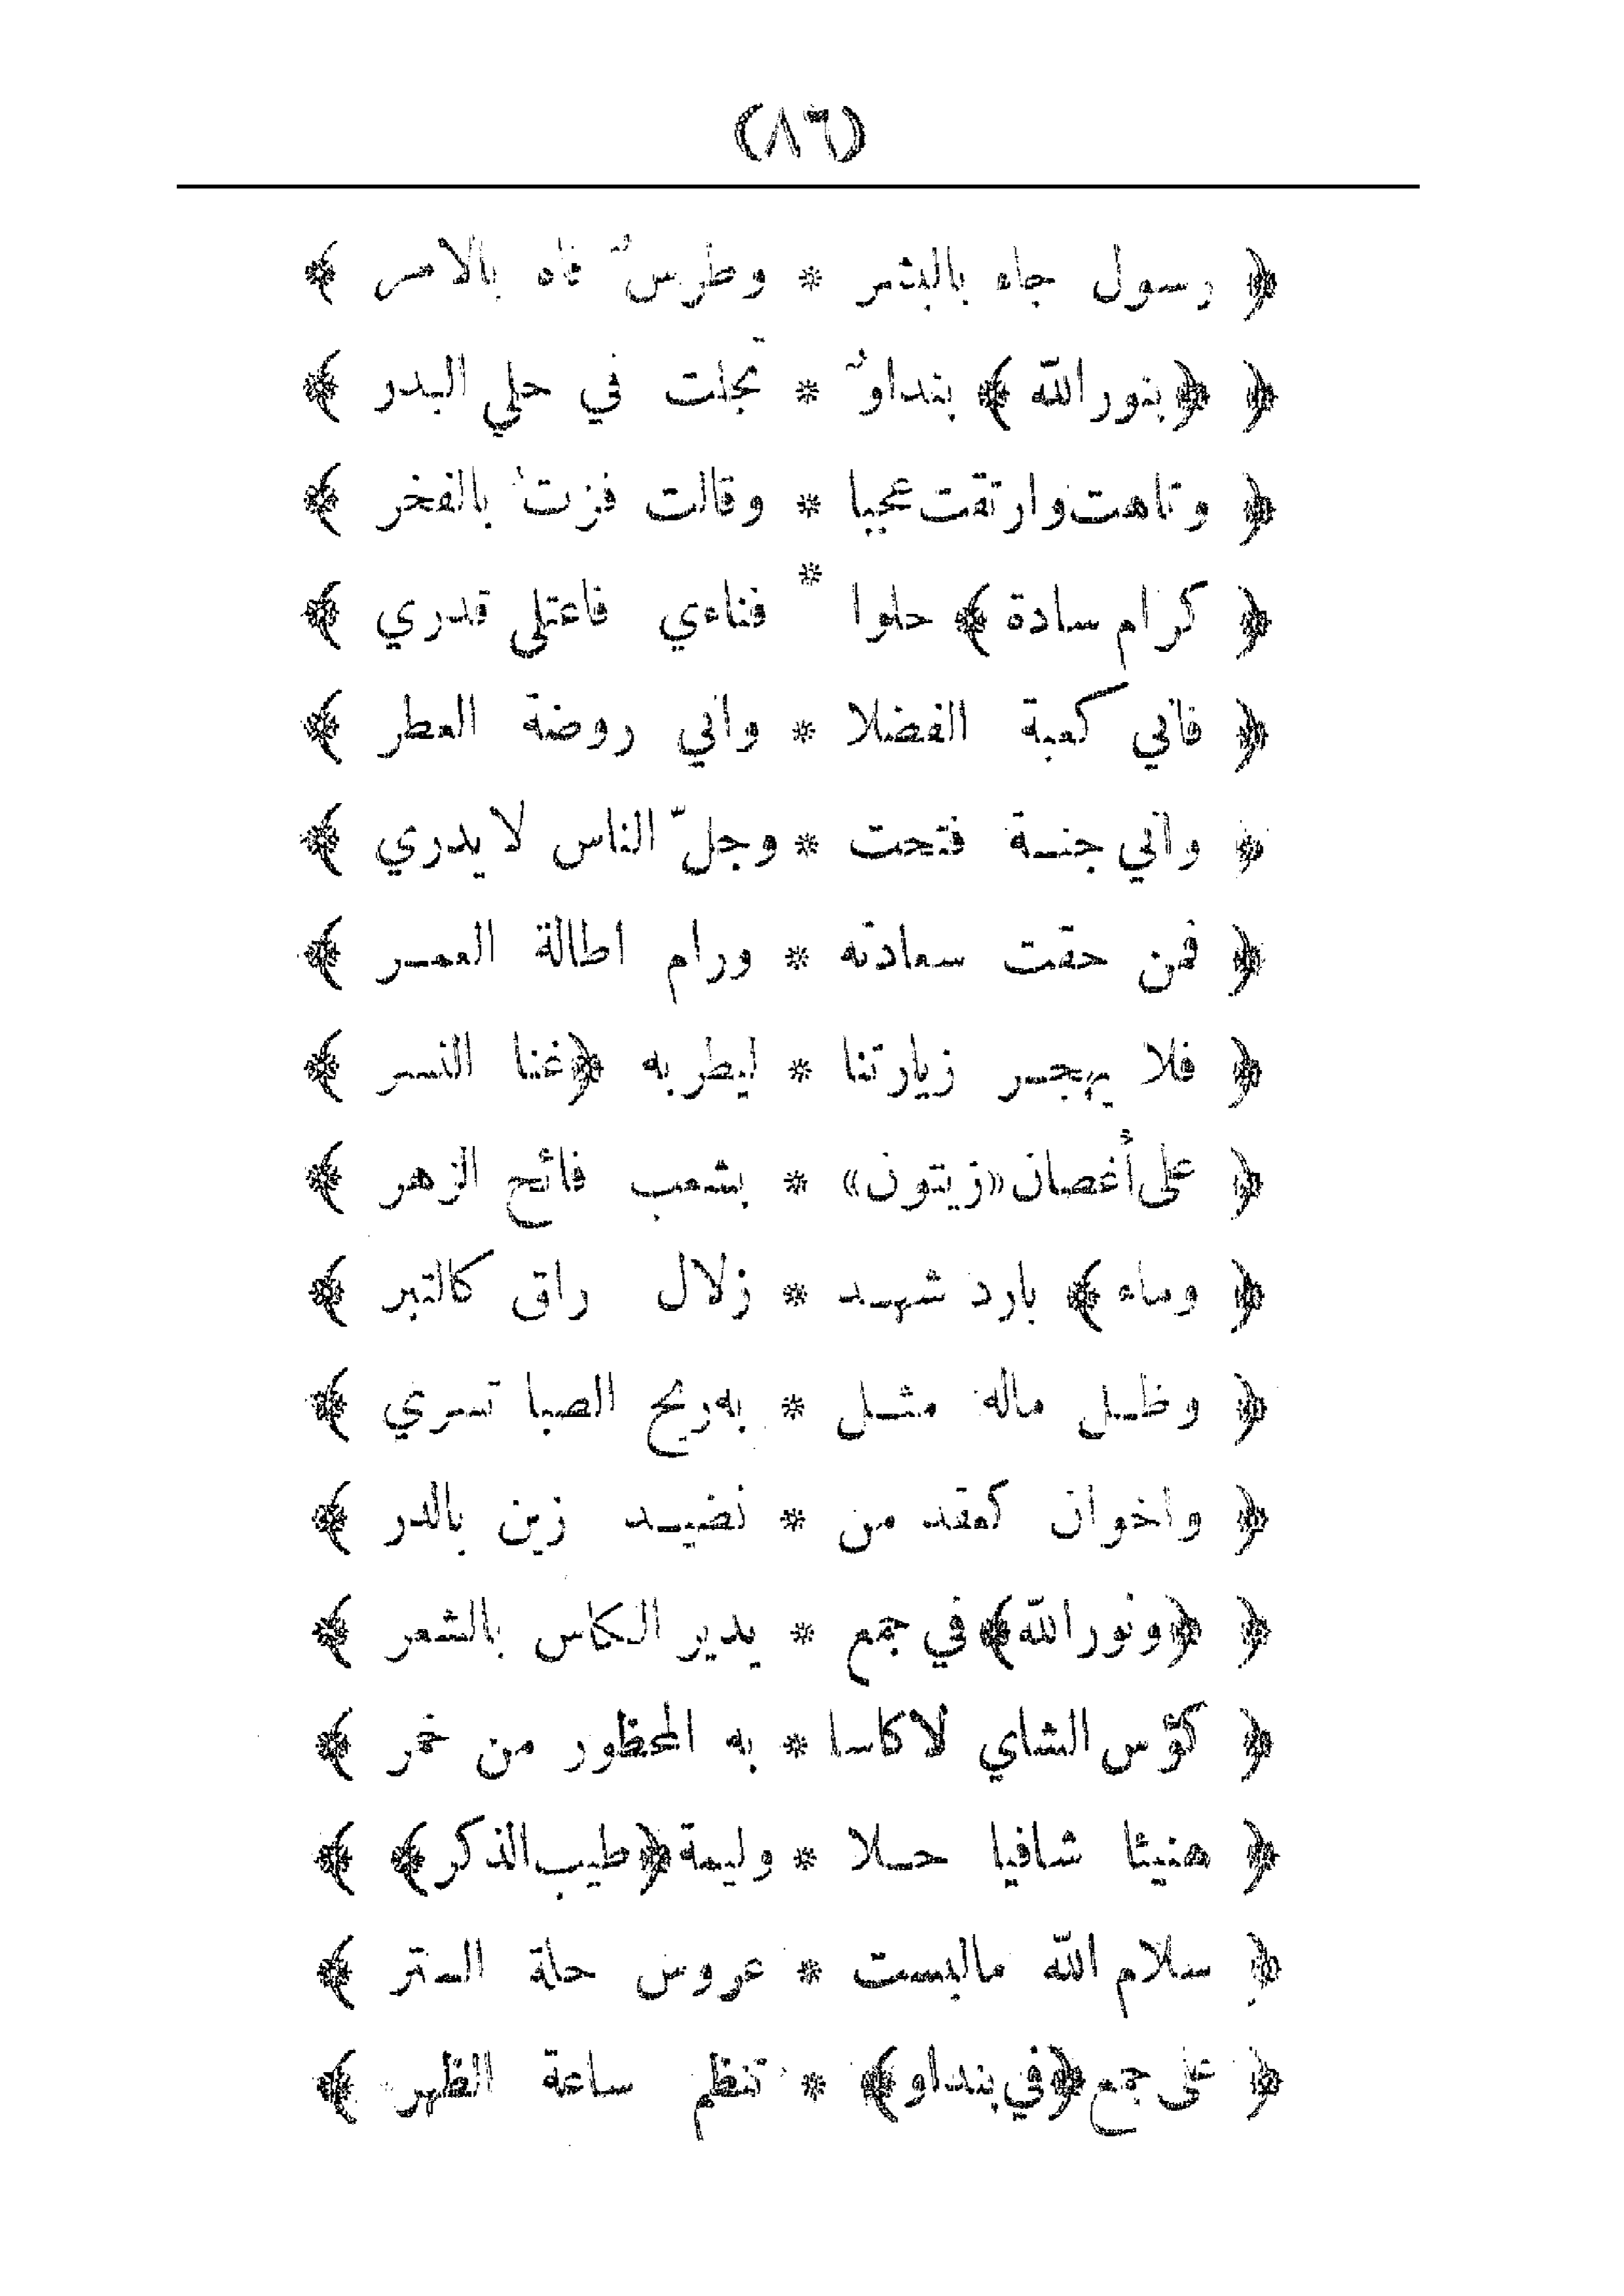 (٨٦)
﴿ رسول جاء بالبشر * وطرسٌ فاه بالامر ﴾
﴿ ﴿بنور الله﴾ بنداوٌ * تجلت في حلي البدر ﴾
﴿ وتاهت وارتقت عجبا * وقالت فزتُ بالفخر ﴾
﴿ كرام سادة ﴾ حلوا * فناءي فاعتلى قدري ﴾
﴿ فاني كعبة الفضلا * واني روضة العطر ﴾
﴿ واني جنة فتحت * وجلّ الناس لا يدري ﴾
﴿ فمن حقت سعادته * ورام اطالة العمر ﴾
﴿ فلا يهجر زيارتنا * ليطربه ﴿غنا النسر ﴾
﴿ على أغصان «زيتون» * بشعب فائح الزهر ﴾
﴿ وماء ﴾ بارد شهد * زلال راق كالتبر ﴾
﴿ وظل ماله مثل * به ريح الصبا تسري ﴾
﴿ واخوان كعقد من * نضيد زين بالدر ﴾
﴿ ﴿ونور الله﴾ في جمع * يدير الكاس بالشعر ﴾
﴿ كؤس الشاي لا كاسا * به المحظور من خمر ﴾
﴿ هنيئا شافيا حلا * وليمة ﴿طيب الذكر﴾ ﴾
﴿ سلام الله مالبست * عروس حلة الستر ﴾
﴿ على جمع ﴿في بنداو﴾ * تنظم ساعة الظهر ﴾